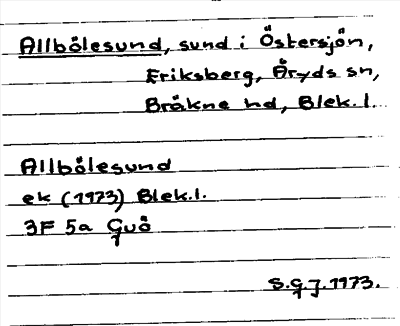 Allbölesund, sund i Östersjön,
Eriksberg, Åryds sn,
Bräkne hd, Blek.l.
Allbölesund
ek (1973) Blek.l.
3F 5a Guö
S.G.J. 1973.